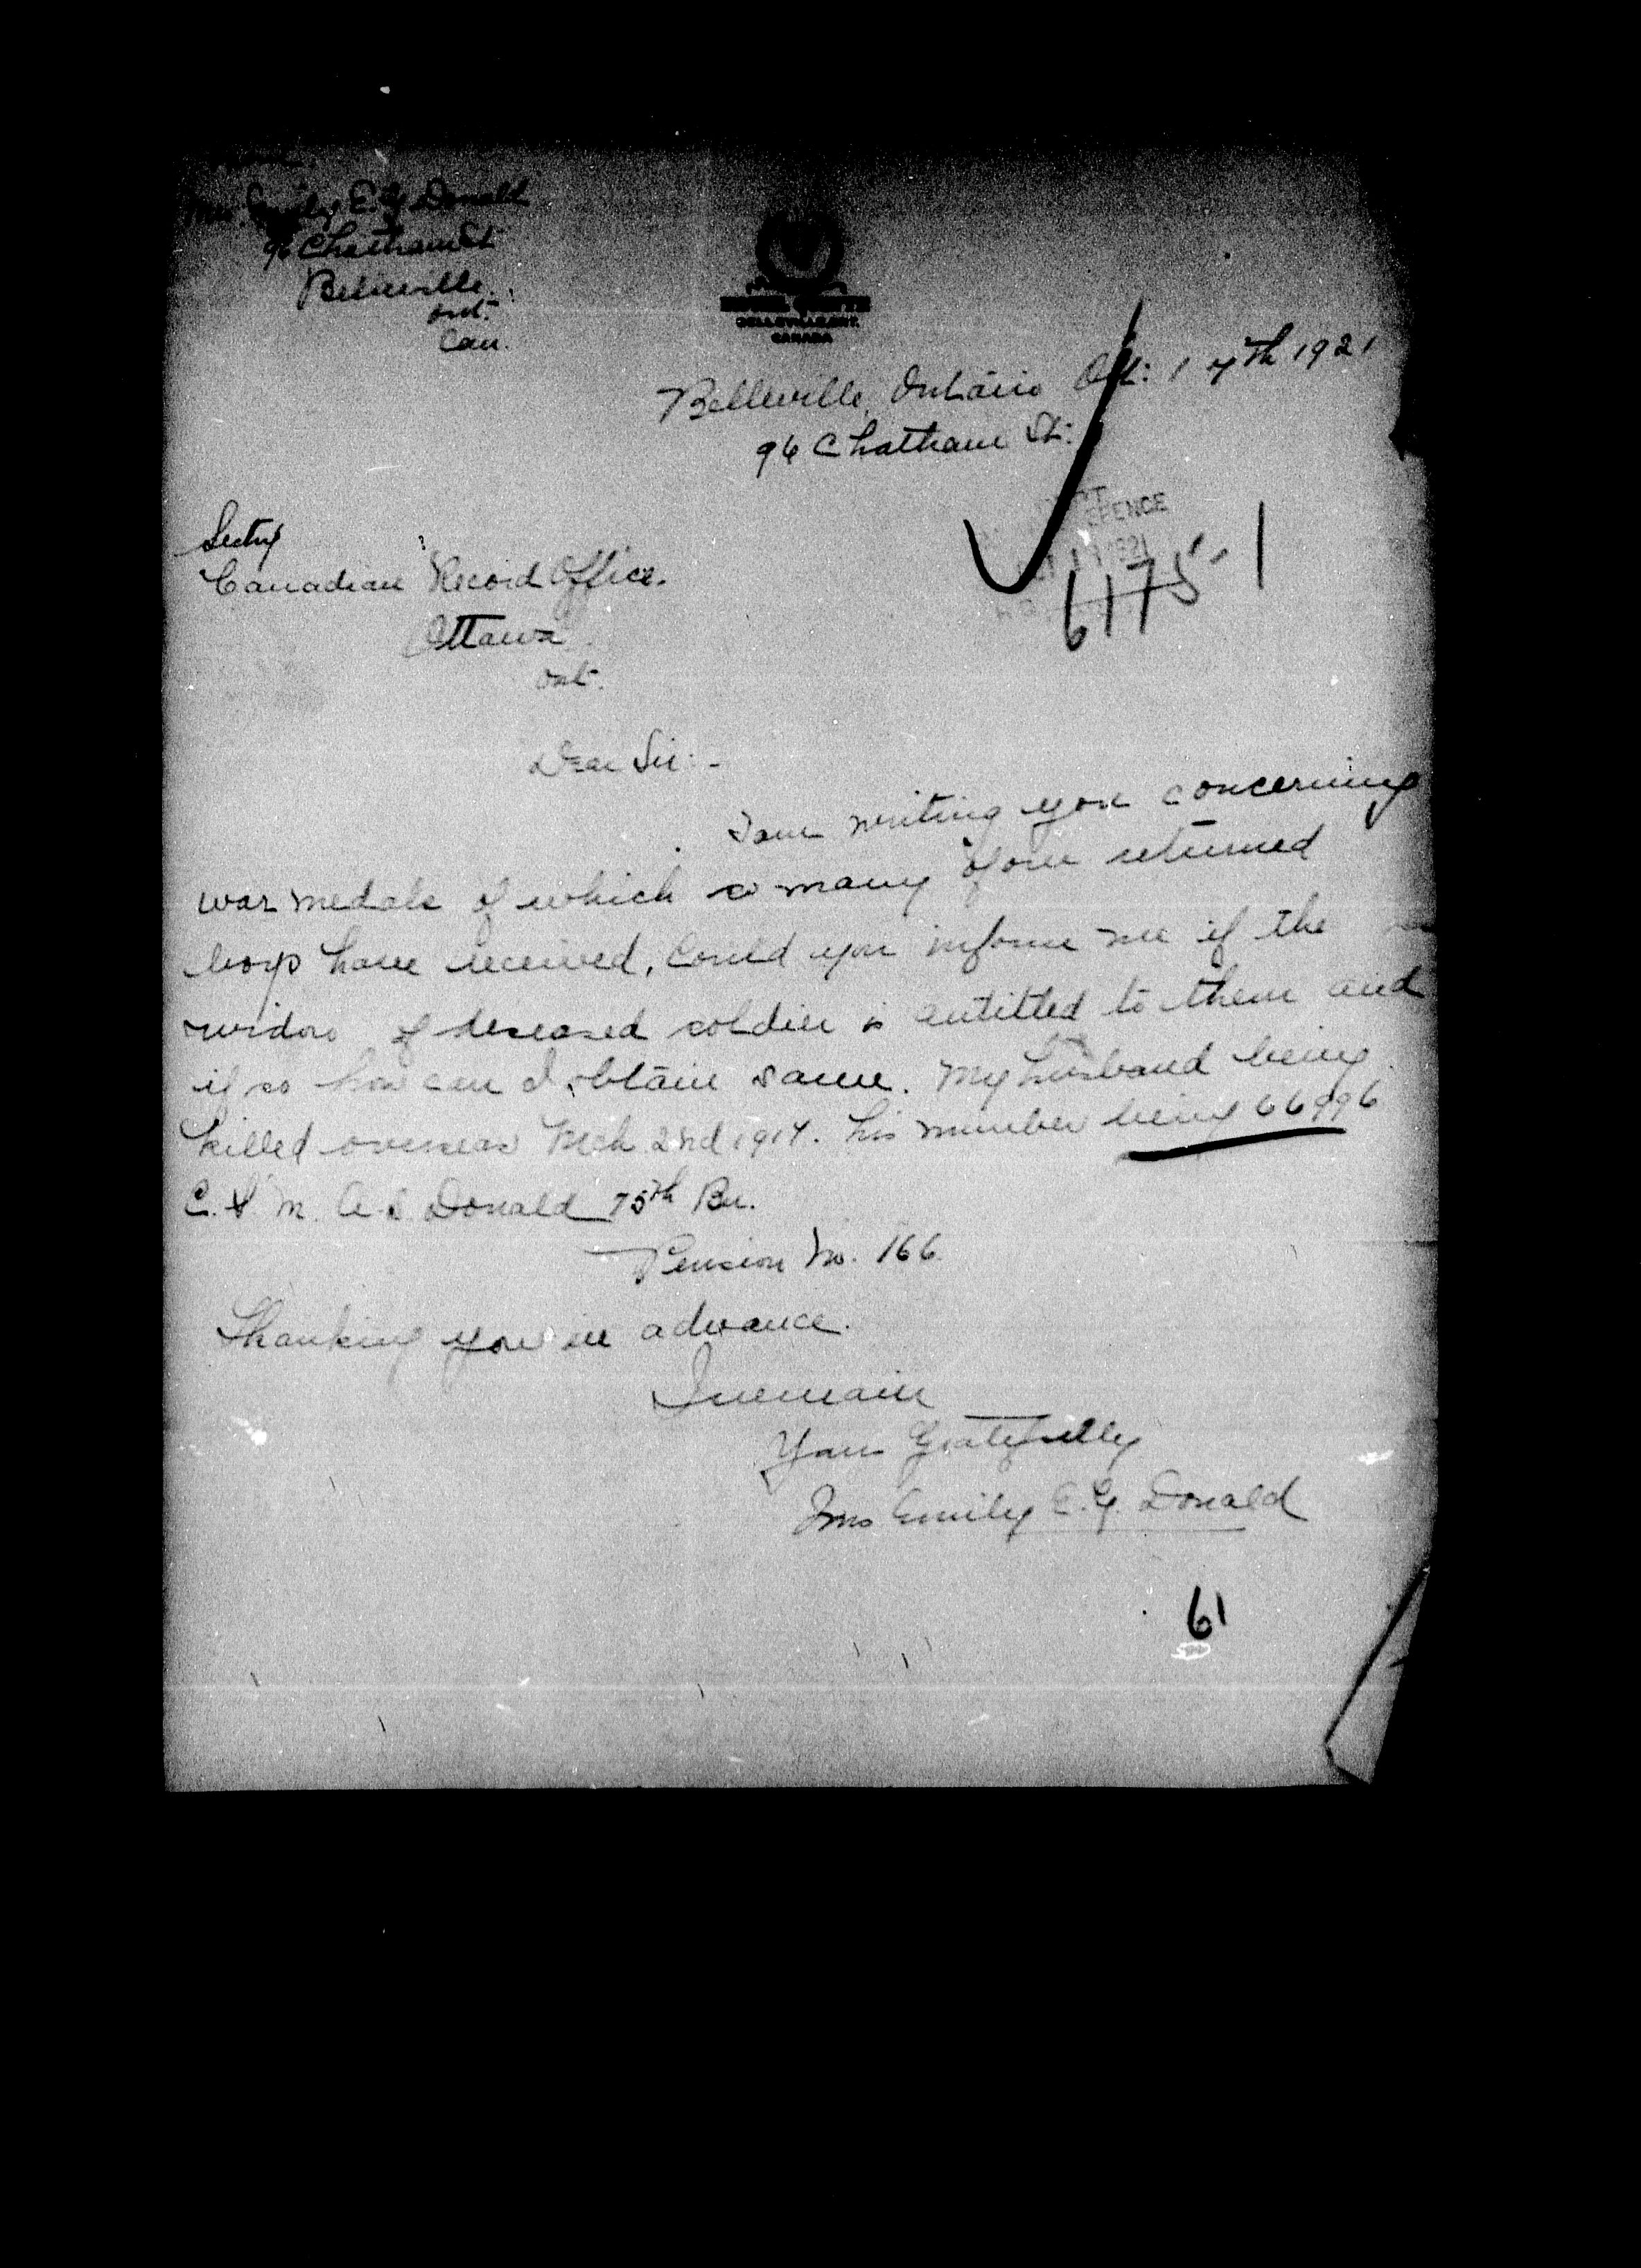 Mrs Emily E. G. Donald
96 Chatham St
Belleville.
Ont.
Can.
BELLEVILLE, ONT.
CANADA
Belleville, Ontario Oct: 17th 1921
96 Chatham St:
Secty
Canadian Record Office.
Ottawa
Ont.
6175-1
Dear Sir:-
I am writing you concerning
war medals of which so many of our returned
boys have received. Could you inform me if the
widow of deseased soldier is entitled to them and
if so how can I obtain same. My husband being
killed overseas Mch 2nd 1917. his number being 66996
C. S. M. A. S. Donald 75th Bn.
Pension No. 166
Thanking you in advance.
I remain
Yours Gratefully
Mrs Emily E. G. Donald
61